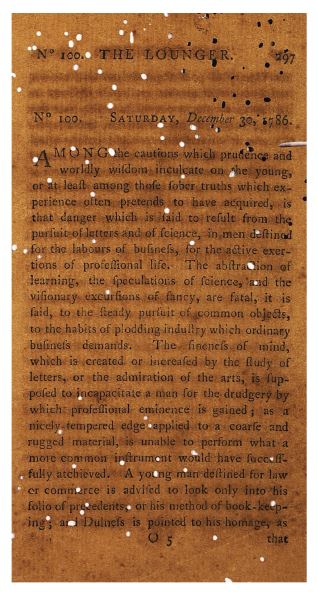 Nº 100. THE LOUNGER. 297
Nº 100. SATURDAY, December 30, 1786.
AMONG the cautions which prudence and
worldly wiſdom inculcate on the young,
or at leaſt among thoſe ſober truths which ex-
perience often pretends to have acquired, is
that danger which is ſaid to reſult from the
purſuit of letters and of ſcience, in men deſtined
for the labours of buſineſs, for the active exer-
tions of profeſſional life. The abſtraction of
learning, the ſpeculations of ſcience, and the
viſionary excurſions of fancy, are fatal, it is
ſaid, to the ſteady purſuit of common objects,
to the habits of plodding induſtry which ordinary
buſineſs demands. The fineneſs of mind,
which is created or increaſed by the ſtudy of
letters, or the admiration of the arts, is ſup-
poſed to incapacitate a man for the drudgery by
which profeſſional eminence is gained; as a
nicely tempered edge applied to a coarſe and
rugged material, is unable to perform what a
more common inſtrument would have ſucceſſ-
fully atchieved. A young man deſtined for law
or commerce is adviſed to look only into his
folio of precedents, or his method of book-keep-
ing; and Dulneſs is pointed to his homage, as
O 5 that